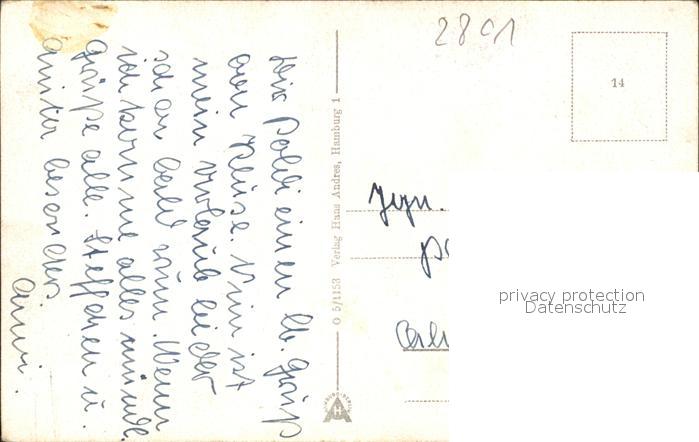 Dir Poldi einen lb. Gruß
von Reise. Nun ist
mein Urlaub leider
schon bald rum. Wenn
ich komme alles mündl.
Grüße alle. Steffchen u.
besonders.
Anni.
O 5/1153 Verlag Hans Andres, Hamburg 1
2891
14
privacy protection
Datenschutz